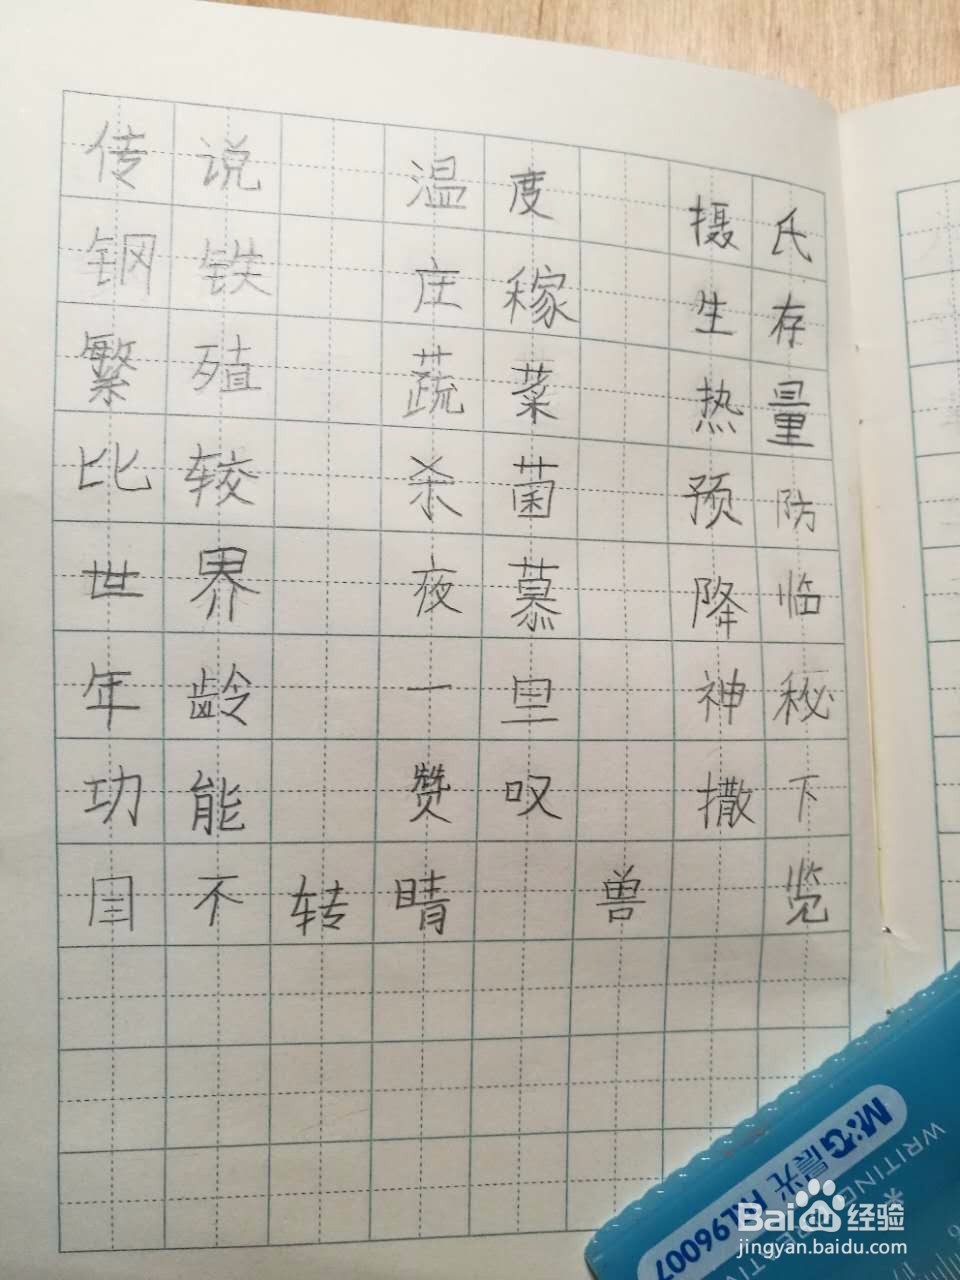 传说 温度 摄氏
钢铁 庄稼 生存
繁殖 蔬菜 热量
比较 杀菌 预防
世界 夜慕 降临
年龄 一里 神秘
功能 赞叹 撒下
不转睛 兽 览
M&G 晨光
96007
WRITING
Baidu 经验
jingyan.baidu.com